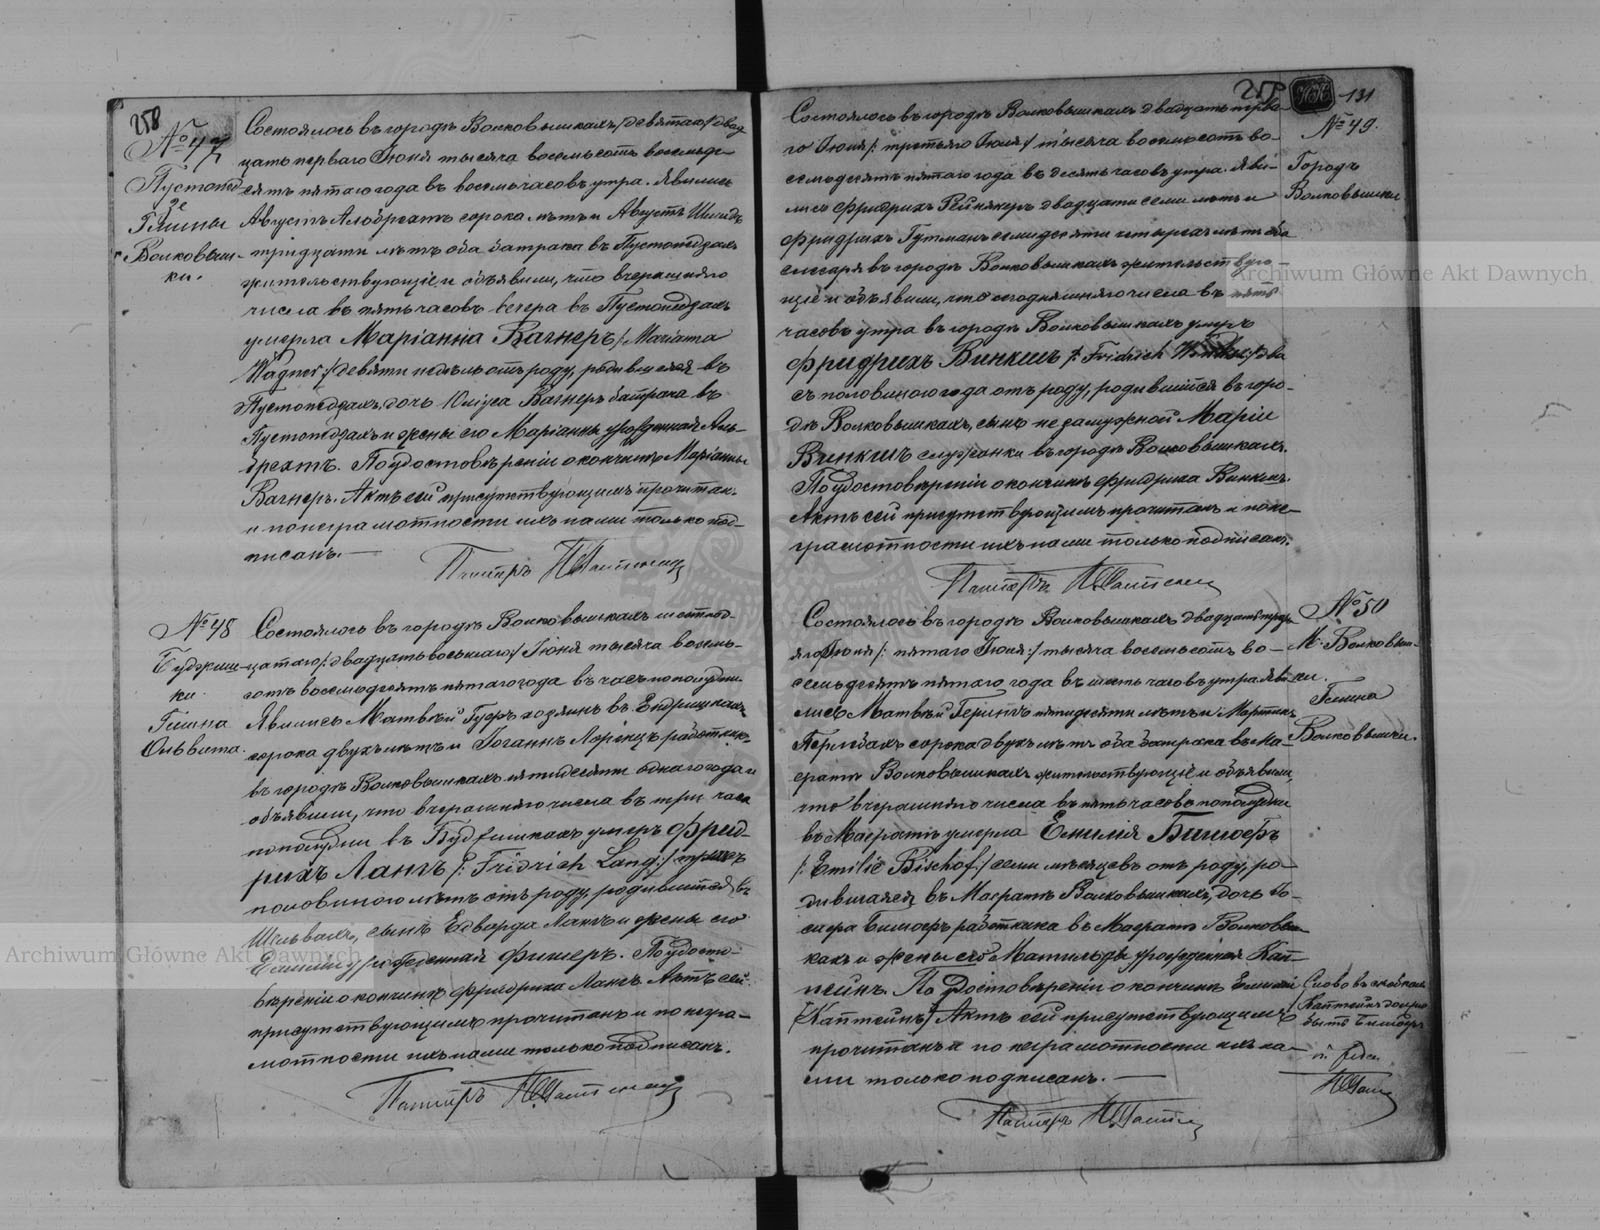 258
№ 47
Пустопед
зе
Гмины
Волковыш-
ки.
Состоялось въ городѣ Волковышкахъ /девятаго/ двад
цать перваго Іюня тысяча восемьсотъ восемьде-
сятъ пятаго года въ восемь часовъ утра. Явились
Августъ Альбрехтъ сорока лѣтъ и Августъ Шмидъ
тридцати лѣтъ оба батрака въ Пустопедзахъ
жительствующіе и объявили, что вчерашняго
числа въ пять часовъ вечера въ Пустопедзахъ
умерла Маріанна Вагнеръ /: Marianna
Wagner :/ девяти недѣль отъ роду, родившаяся въ
Пустопедзахъ, дочь Юліуса Вагнеръ батрака въ
Пустопедзахъ и жены его Маріанны урожденной Аль-
брехтъ. По удостовѣреніи о кончинѣ Маріанны
Вагнеръ. Актъ сей присутствующимъ прочитан.
и по неграмотности ихъ нами только под-
писанъ.
Пасторъ
№ 48
Будвиш-
ки
Гмина
Ольвита.
Состоялось въ городѣ Волковышкахъ шестнад-
цатаго /: двадцать восьмаго :/ Іюня тысяча восемь-
сотъ восемьдесятъ пятаго года въ часъ пополудни.
Явились Матвѣй Гуфъ хозяинъ въ
сорока двухъ лѣтъ и Іоганнъ Лоренцъ работникъ
въ городѣ Волковышкахъ пятидесяти одного года и
объявили, что вчерашняго числа въ три часа
пополудни въ умеръ Фрид-
рихъ Лангъ /: Fridrich Lang :/ съ
половиною лѣтъ отъ роду, родившійся въ
сынъ Едварда Лангъ и жены его
Емиліи урожденной Фишеръ. По удосто-
вѣреніи о кончинѣ Фридриха Лангъ. Актъ сей
присутствующимъ прочитанъ и по негра-
мотности ихъ нами только подписанъ.
Пасторъ
258
131
№ 49.
Городъ
Волковышки
Состоялось въ городѣ Волковышкахъ двадцать перва-
го Іюня /: третьяго Іюля :/ тысяча восемьсотъ во-
семьдесятъ пятаго года въ десять часовъ утра. Яви-
лись Фридрихъ двадцати семи лѣтъ и
Фридрихъ Гутманъ семидесяти четырехъ лѣтъ оба
слесаря въ городѣ Волковышкахъ жительствую-
щіе и объявили, что сегодняшняго числа въ пять
часовъ утра въ городѣ Волковышкахъ умеръ
Фридрихъ Винкшъ /: Fridrich :/ два
съ половиною года отъ роду, родившійся въ горо-
дѣ Волковышкахъ, сынъ незамужной Маріи
Винкшъ служанки въ городѣ Волковышкахъ.
По удостовѣреніи о кончинѣ Фридриха Винкшъ.
Актъ сей присутствующимъ прочитанъ и по не-
грамотности ихъ нами только подписан.
Пасторъ
№ 50
М. Волковыш-
ки.
Гмина
Волковышки.
Состоялось въ городѣ Волковышкахъ двадцать треть-
яго Іюня /: пятаго Іюля :/ тысяча восемьсотъ во-
семьдесятъ пятаго года въ шесть часовъ утра. Яви-
лись Матвѣй Герингъ пятидесяти лѣтъ и Мартинъ
сорока двухъ лѣтъ оба батрака въ Ма-
ератѣ Волковышкахъ жительствующіе и объявили,
что вчерашняго числа въ пять часовъ пополудни
въ Маератѣ умерла Емилія Бишофъ
/: Emilie Bischof :/ семи мѣсяцевъ отъ роду, ро-
дившаяся въ Маератѣ Волковышкахъ, дочь
Бишофъ работника въ Маератѣ Волковыш-
кахъ и жены его Матильды урожденной Кап-
тейнъ. По удостовѣреніи о кончинѣ Емиліи
/Каптейнъ/ Актъ сей присутствующимъ
прочитанъ и по неграмотности ихъ на-
ми только подписанъ.
Пасторъ
Слово въ скобкахъ
Каптейнъ должно
быть Бишофъ
Archiwum Główne Akt Dawnych
Archiwum Główne Akt Dawnych